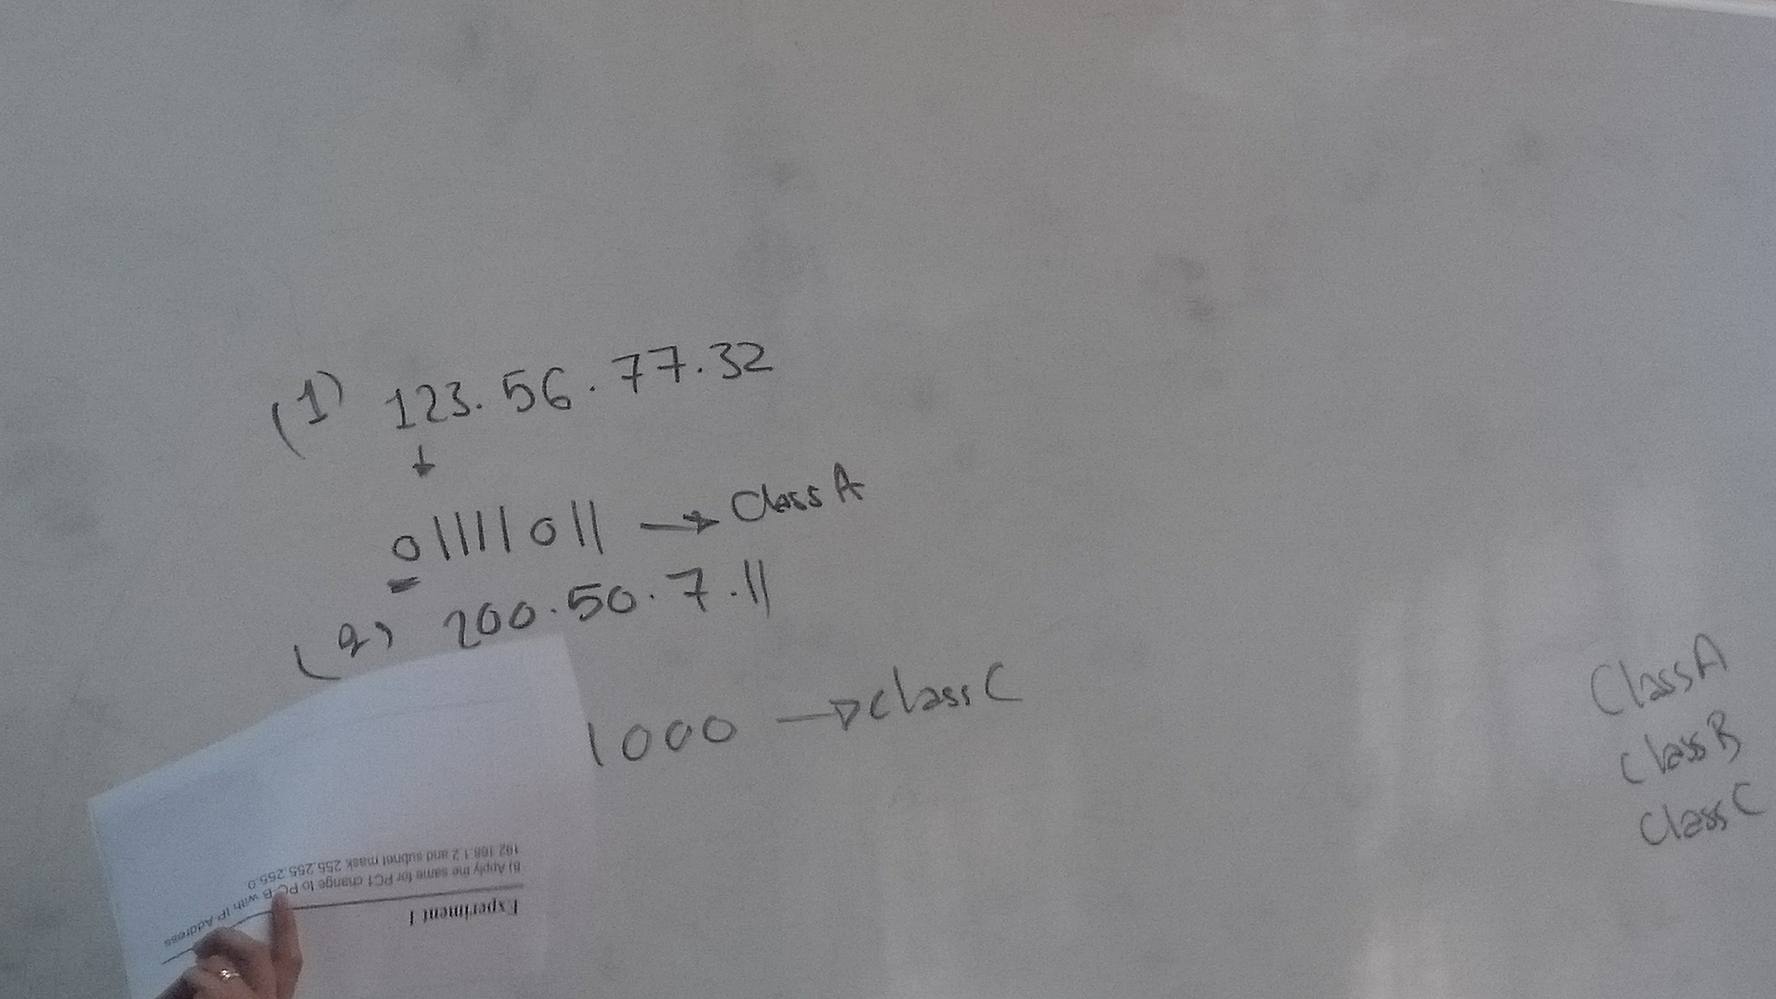 (1) 123.56.77.32
01111011 → Class A
(2) 200.50.7.11
1000 → Class C
Class A
Class B
Class C
Experiment 1
B) Apply the same for PC1 change to PC-B with IP Address
192.168.1.2 and subnet mask 255.255.255.0